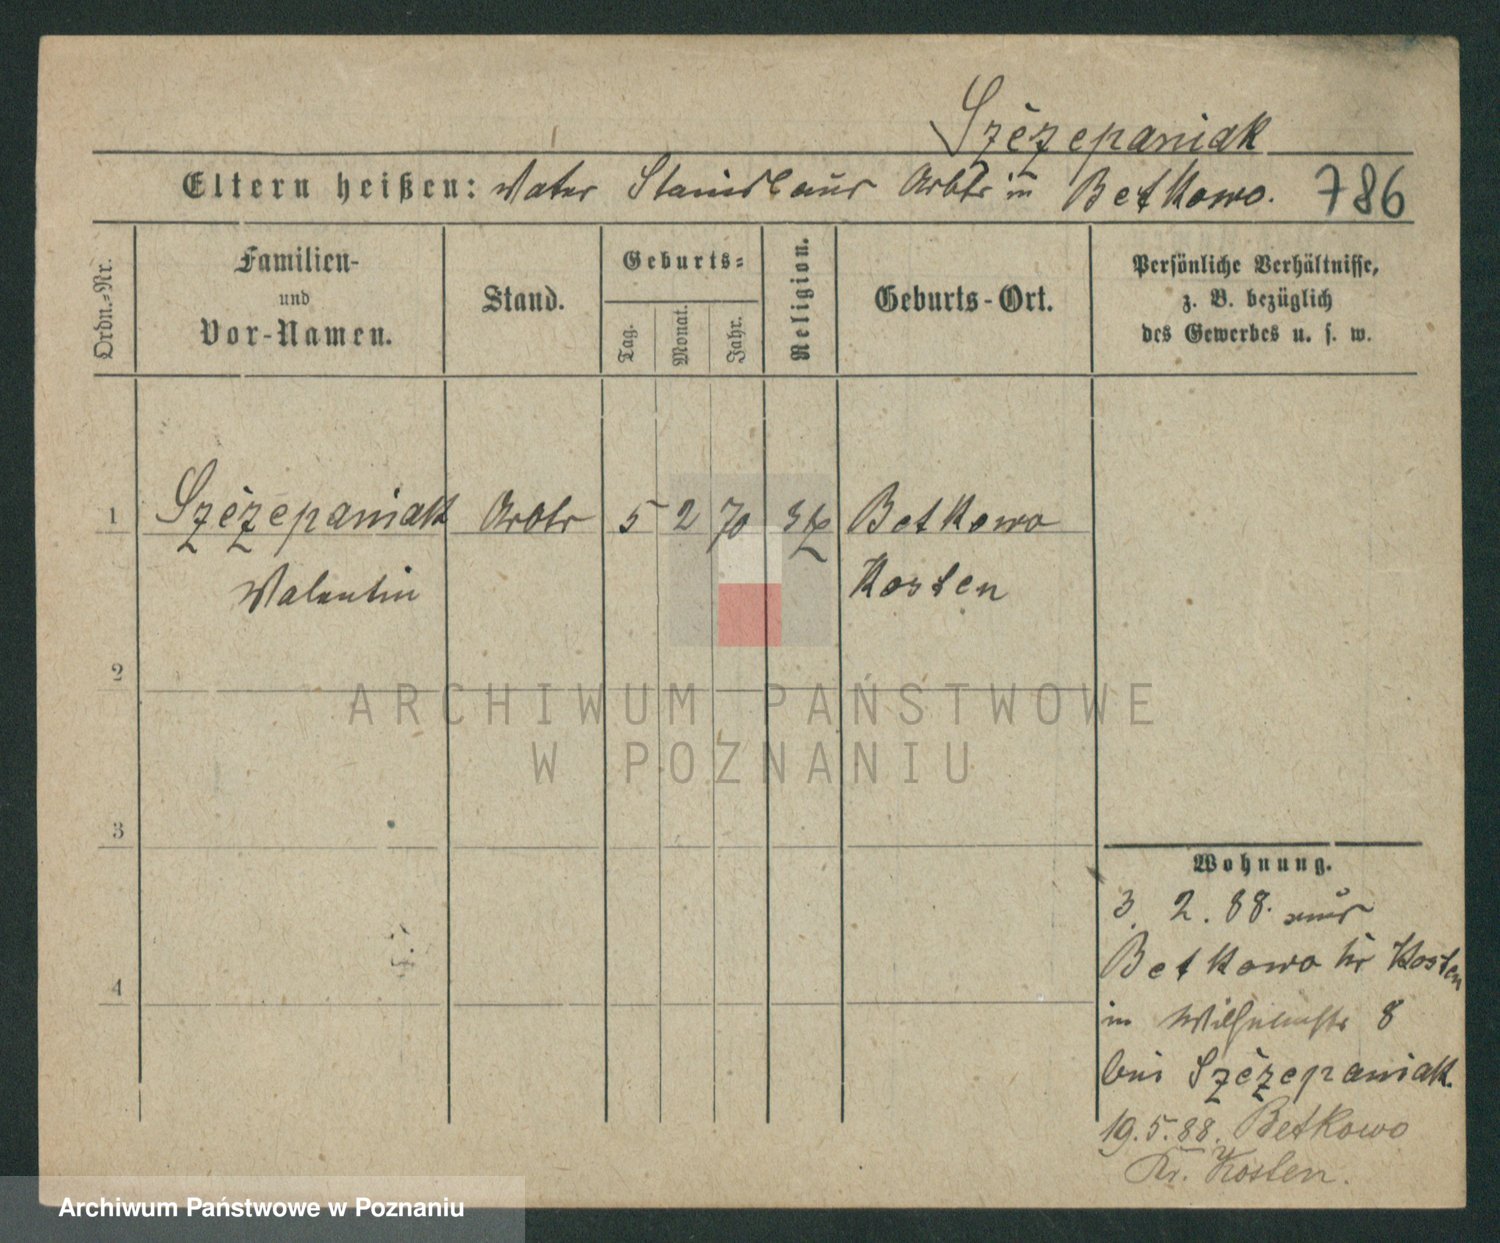 Szczepaniak
Eltern heißen: Vater Stanislaus Arbtr in Betkowo. 786
Ordn.-Nr.
Familien-
und
Vor-Namen.
Stand.
Geburts-
Tag.
Monat.
Jahr.
Religion.
Geburts-Ort.
Persönliche Verhältnisse,
z. B. bezüglich
des Gewerbes u. s. w.
1 Szczepaniak Arbtr 5 2 70 Betkowo
Valentin Kosten
2
ARCHIWUM PAŃSTWOWE
W POZNANIU
3
Wohnung.
3. 2. 88. aus
Betkowo Kr Kosten
4
in Wilhelmstr 8
bei Szczepaniak.
19.5.88. Betkowo
Kr. Kosten.
Archiwum Państwowe w Poznaniu